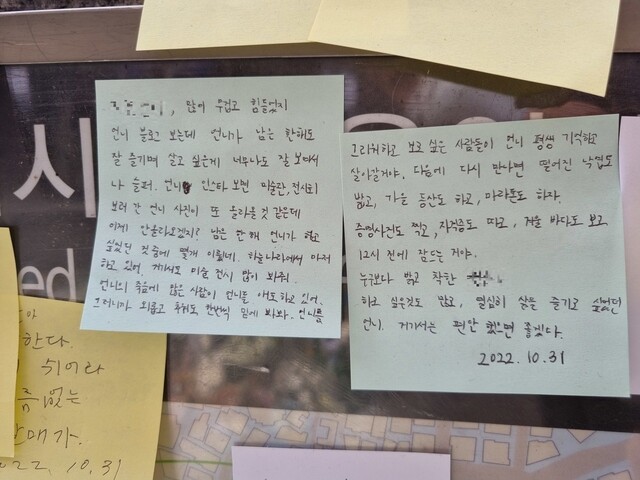 많이 무겁고 힘들었지
언니 블로그 보는데 언니가 남은 한해도
잘 즐기며 살고 싶은게 너무나도 잘 보여서
나 슬퍼. 언니 인스타 보면 미술관, 전시회
보러 간 언니 사진이 또 올라올 것 같은데
이제 안올라오겠지? 남은 한 해 언니가 하고
싶었던 것중에 몇개 이뤘네. 하늘나라에서 마저
하고 있어. 거기서도 미술 전시 많이 봐줘.
언니의 죽음에 많은 사람이 언니를 애도하고 있어.
그러니까 외롭고 추워도 한번씩 밑에 봐봐. 언니를
그리워하고 보고 싶은 사람들이 언니 평생 기억하고
살아갈거야. 다음에 다시 만나면 떨어진 낙엽도
밟고, 가을 등산도 하고, 마라톤도 하자.
증명사진도 찍고, 자격증도 따고, 겨울 바다도 보고
12시 전에 잠드는 거야.
누구보다 밝고 착한
하고 싶은것도 많고, 열심히 삶을 즐기고 싶어던
언니. 거기서는 편안 했으면 좋겠다.
2022.10.31
시
ed
한다.
쉬어라
름없는
매가.
2022. 10. 31